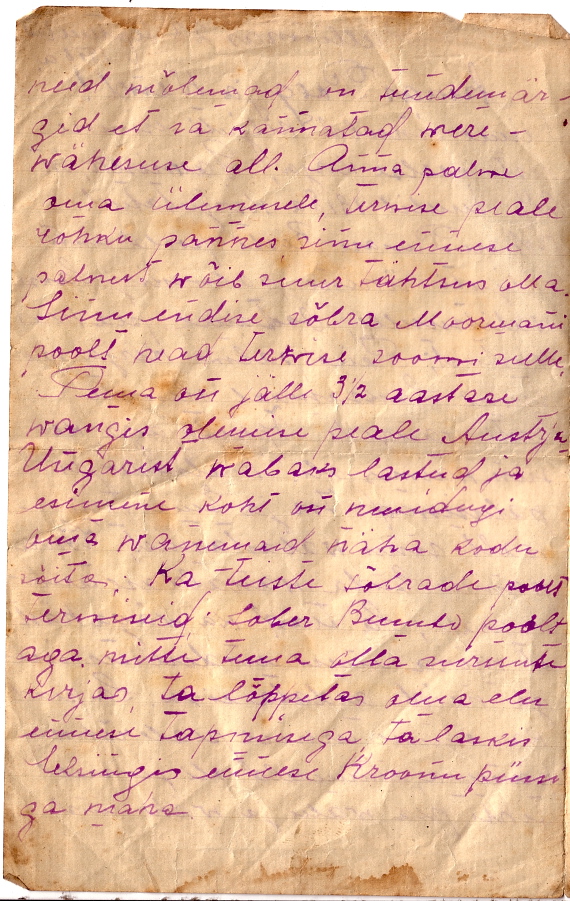 need mõlemad on tundemär-
gid et sa kannatad were-
wähesuse all. Anna palwe
oma ülemusele, terwise peale
rõhku pannes sinu ennese
palwest wõib suur tähtsus olla.
Sinu endise sõbra Moosmani
poolt head terwise soowi sulle,
Tema on jälle 3 1/2 aastase
wangis olemise peale Austrja
Ungarist wabaks lastud ja
esimene koht on muidugi
oma wanemaid näha kodu
sõita. Ka teiste sõbrade poolt
terwisid; sober poolt
aga mitte tema olla surnute
kirjas, ta lõppetas oma elu
ennese tapmisega, ta laskis
ennese Kroonu püssi
ga maha